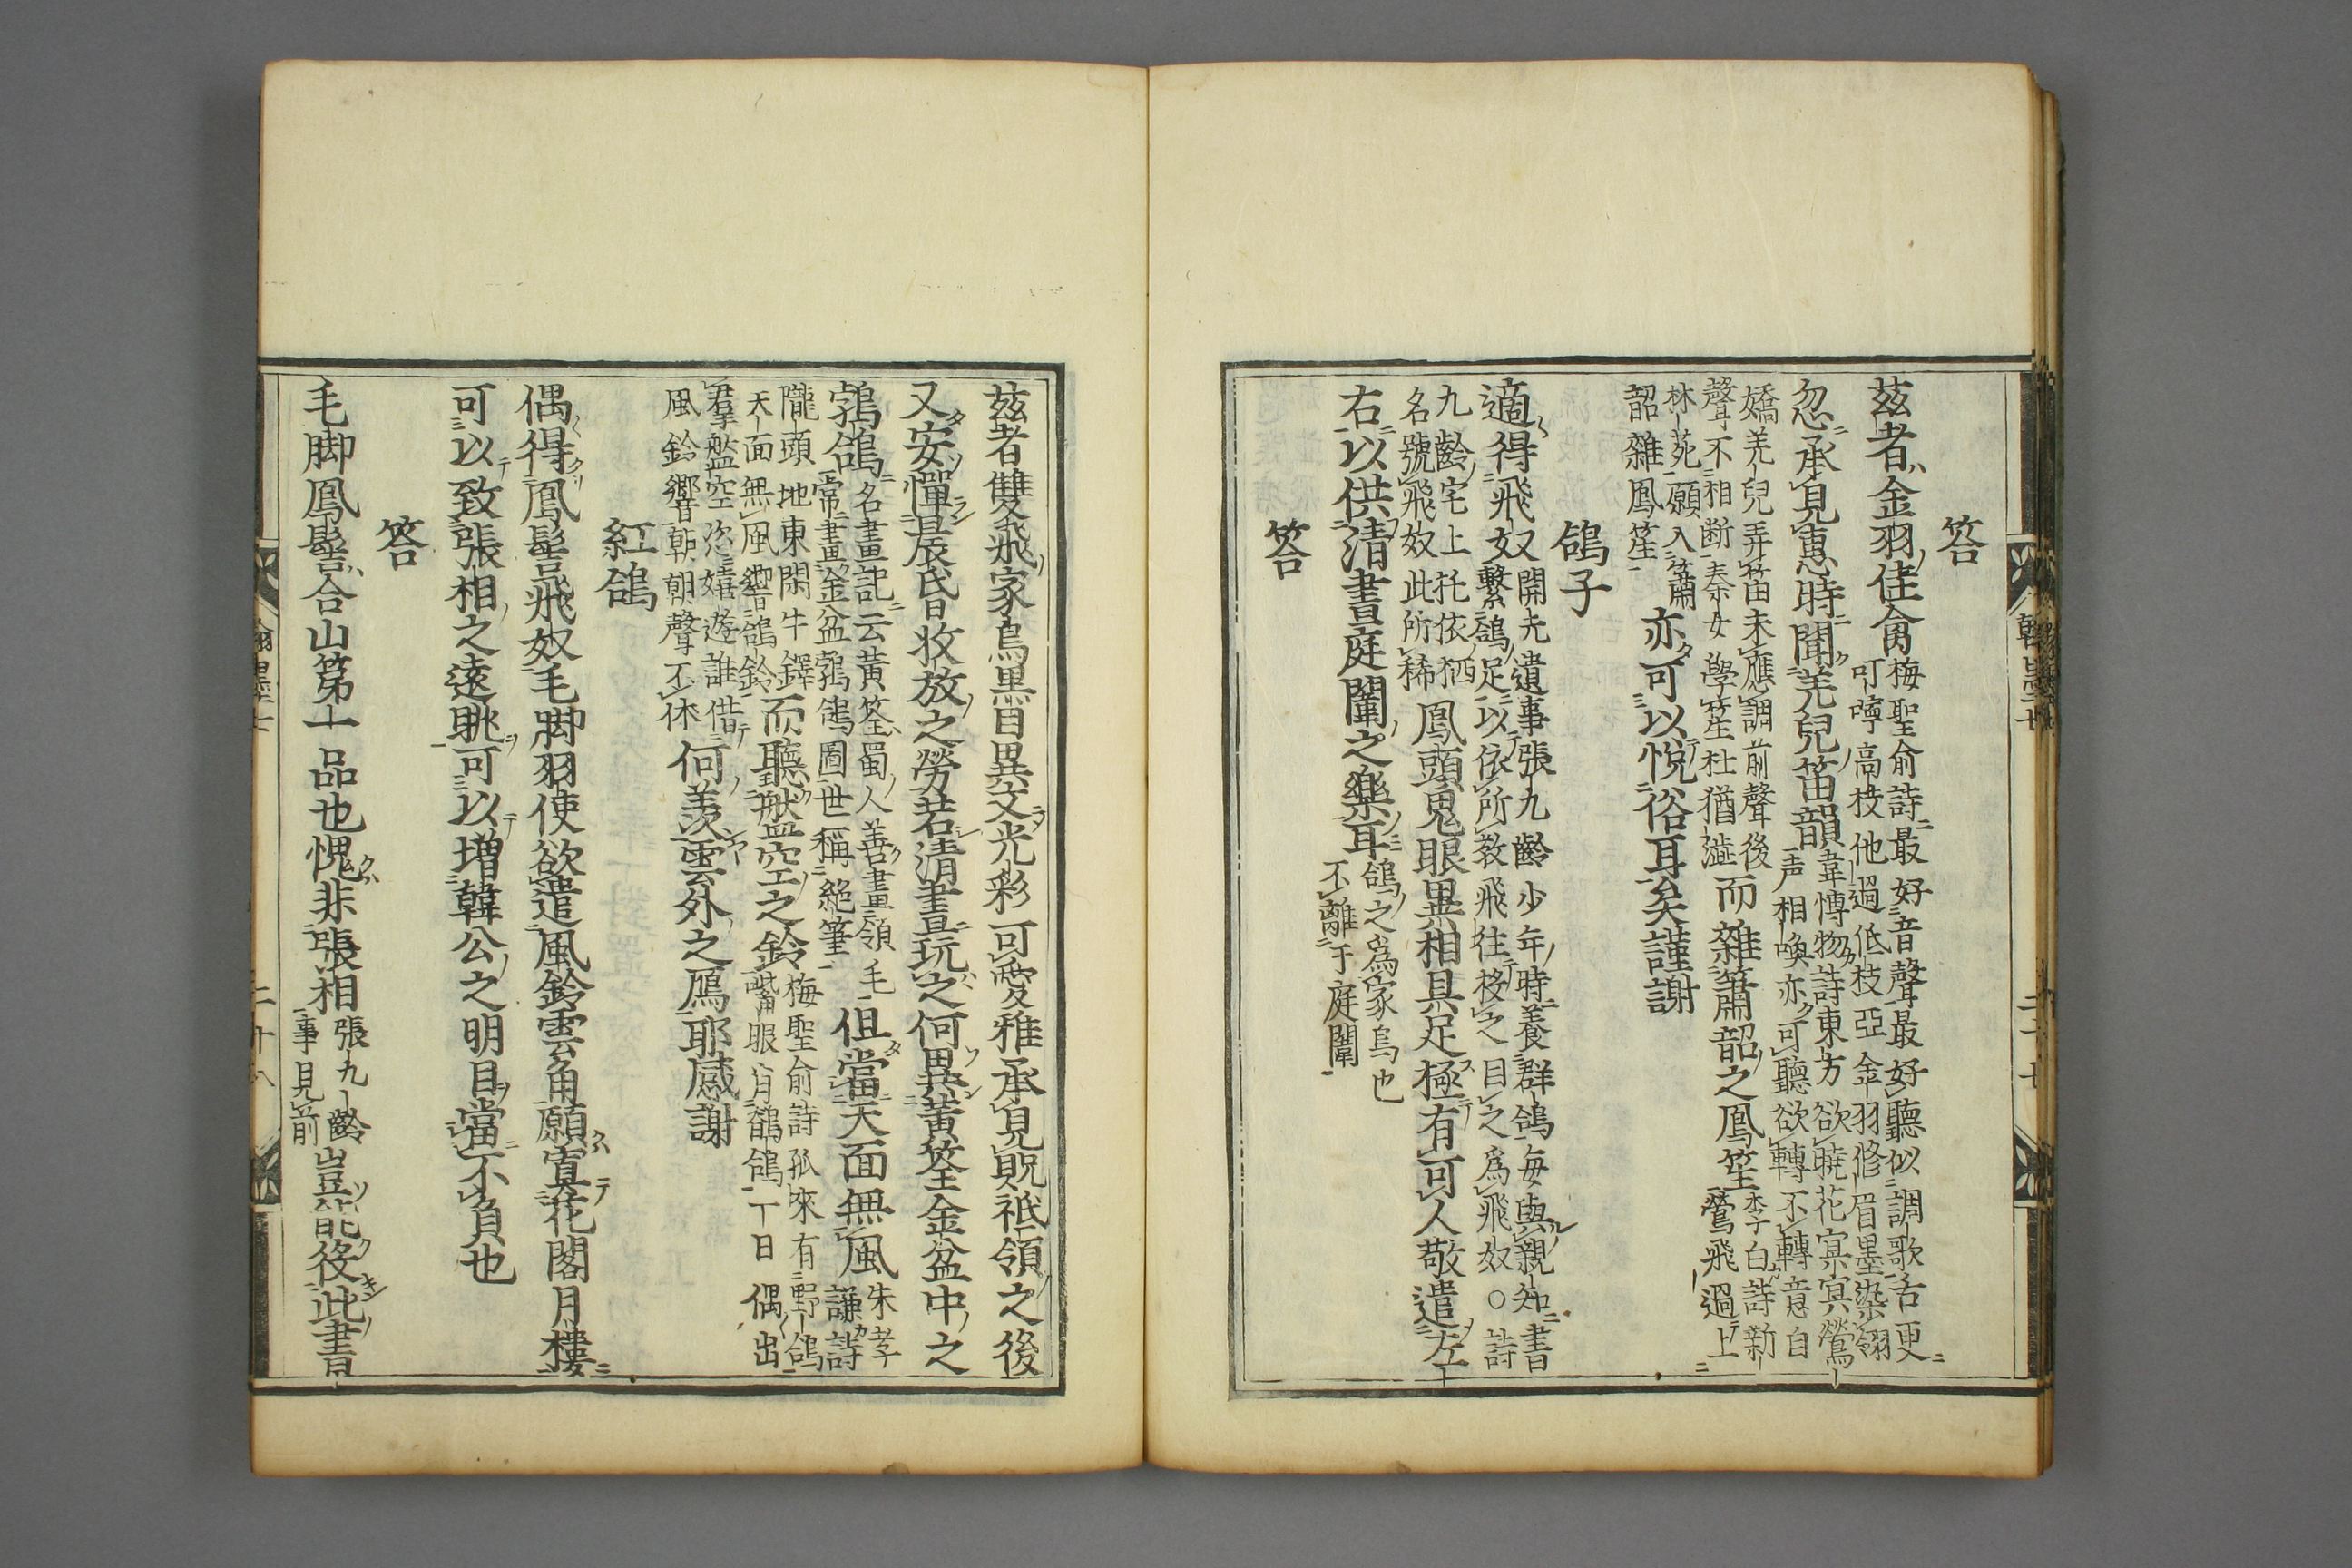 答
茲者金羽佳禽梅聖俞詩最好音聲最好聽似調歌舌更
叮嚀高枝他過低枝亞金羽修眉墨染翎
忽承見惠時聞羌兒笛韻韋慱物詩東方欲暁花冥冥鶯
声相喚亦可聽欲轉不轉意自
嬌羌兒弄笛未應調前聲後
聲不相断秦女學笙杜猶澁而雜簫韶之鳳笙李白詩新
鶯飛過上
林苑願入簫
韶雜鳳笙亦可以悅俗耳矣謹謝
鴿子
適得飛奴開元遺事張九齡少年時養群鴿每與親知書
繫鴿足以依所教飛往投之目之爲飛奴○詩
九齡宅上托依栖
名號飛奴此所稀鳳頭鬼眼異相具足極有可人敬遣左
右以供清書庭闈之樂耳鴿之爲家鳥也
不離于庭闈
答
茲者雙飛家鳥黒目異文光彩可愛雅承見貺祗領之後
又安憚晨昏收放之勞若清晝玩之何異黃筌金盆中之
鵓鴿名畫記云黃筌蜀人善畫領毛
常畫金盆鵓鴿圖世稱絶筆但當天面無風朱孝
謙詩
隴頭地東閑牛鐸
天面無風響鴿鈴而聽盤空之鈴梅聖俞詩孤來有野鴿
觜眼肖鵮鴿一日偶出
羣盤空恣嬉遊誰借
風鈴響朝朝聲不休何羨雲外之鴈耶感謝
紅鴿
偶得鳳髻飛奴毛脚羽使欲遣風鈴雲角願寘花閣月樓
可以致張相之遠眺可以增韓公之明目當不負也
答
毛脚鳳髻合山第十品也愧非張相張九齡
事見前豈能役此書
翰墨七
二十七
翰墨七
二十八